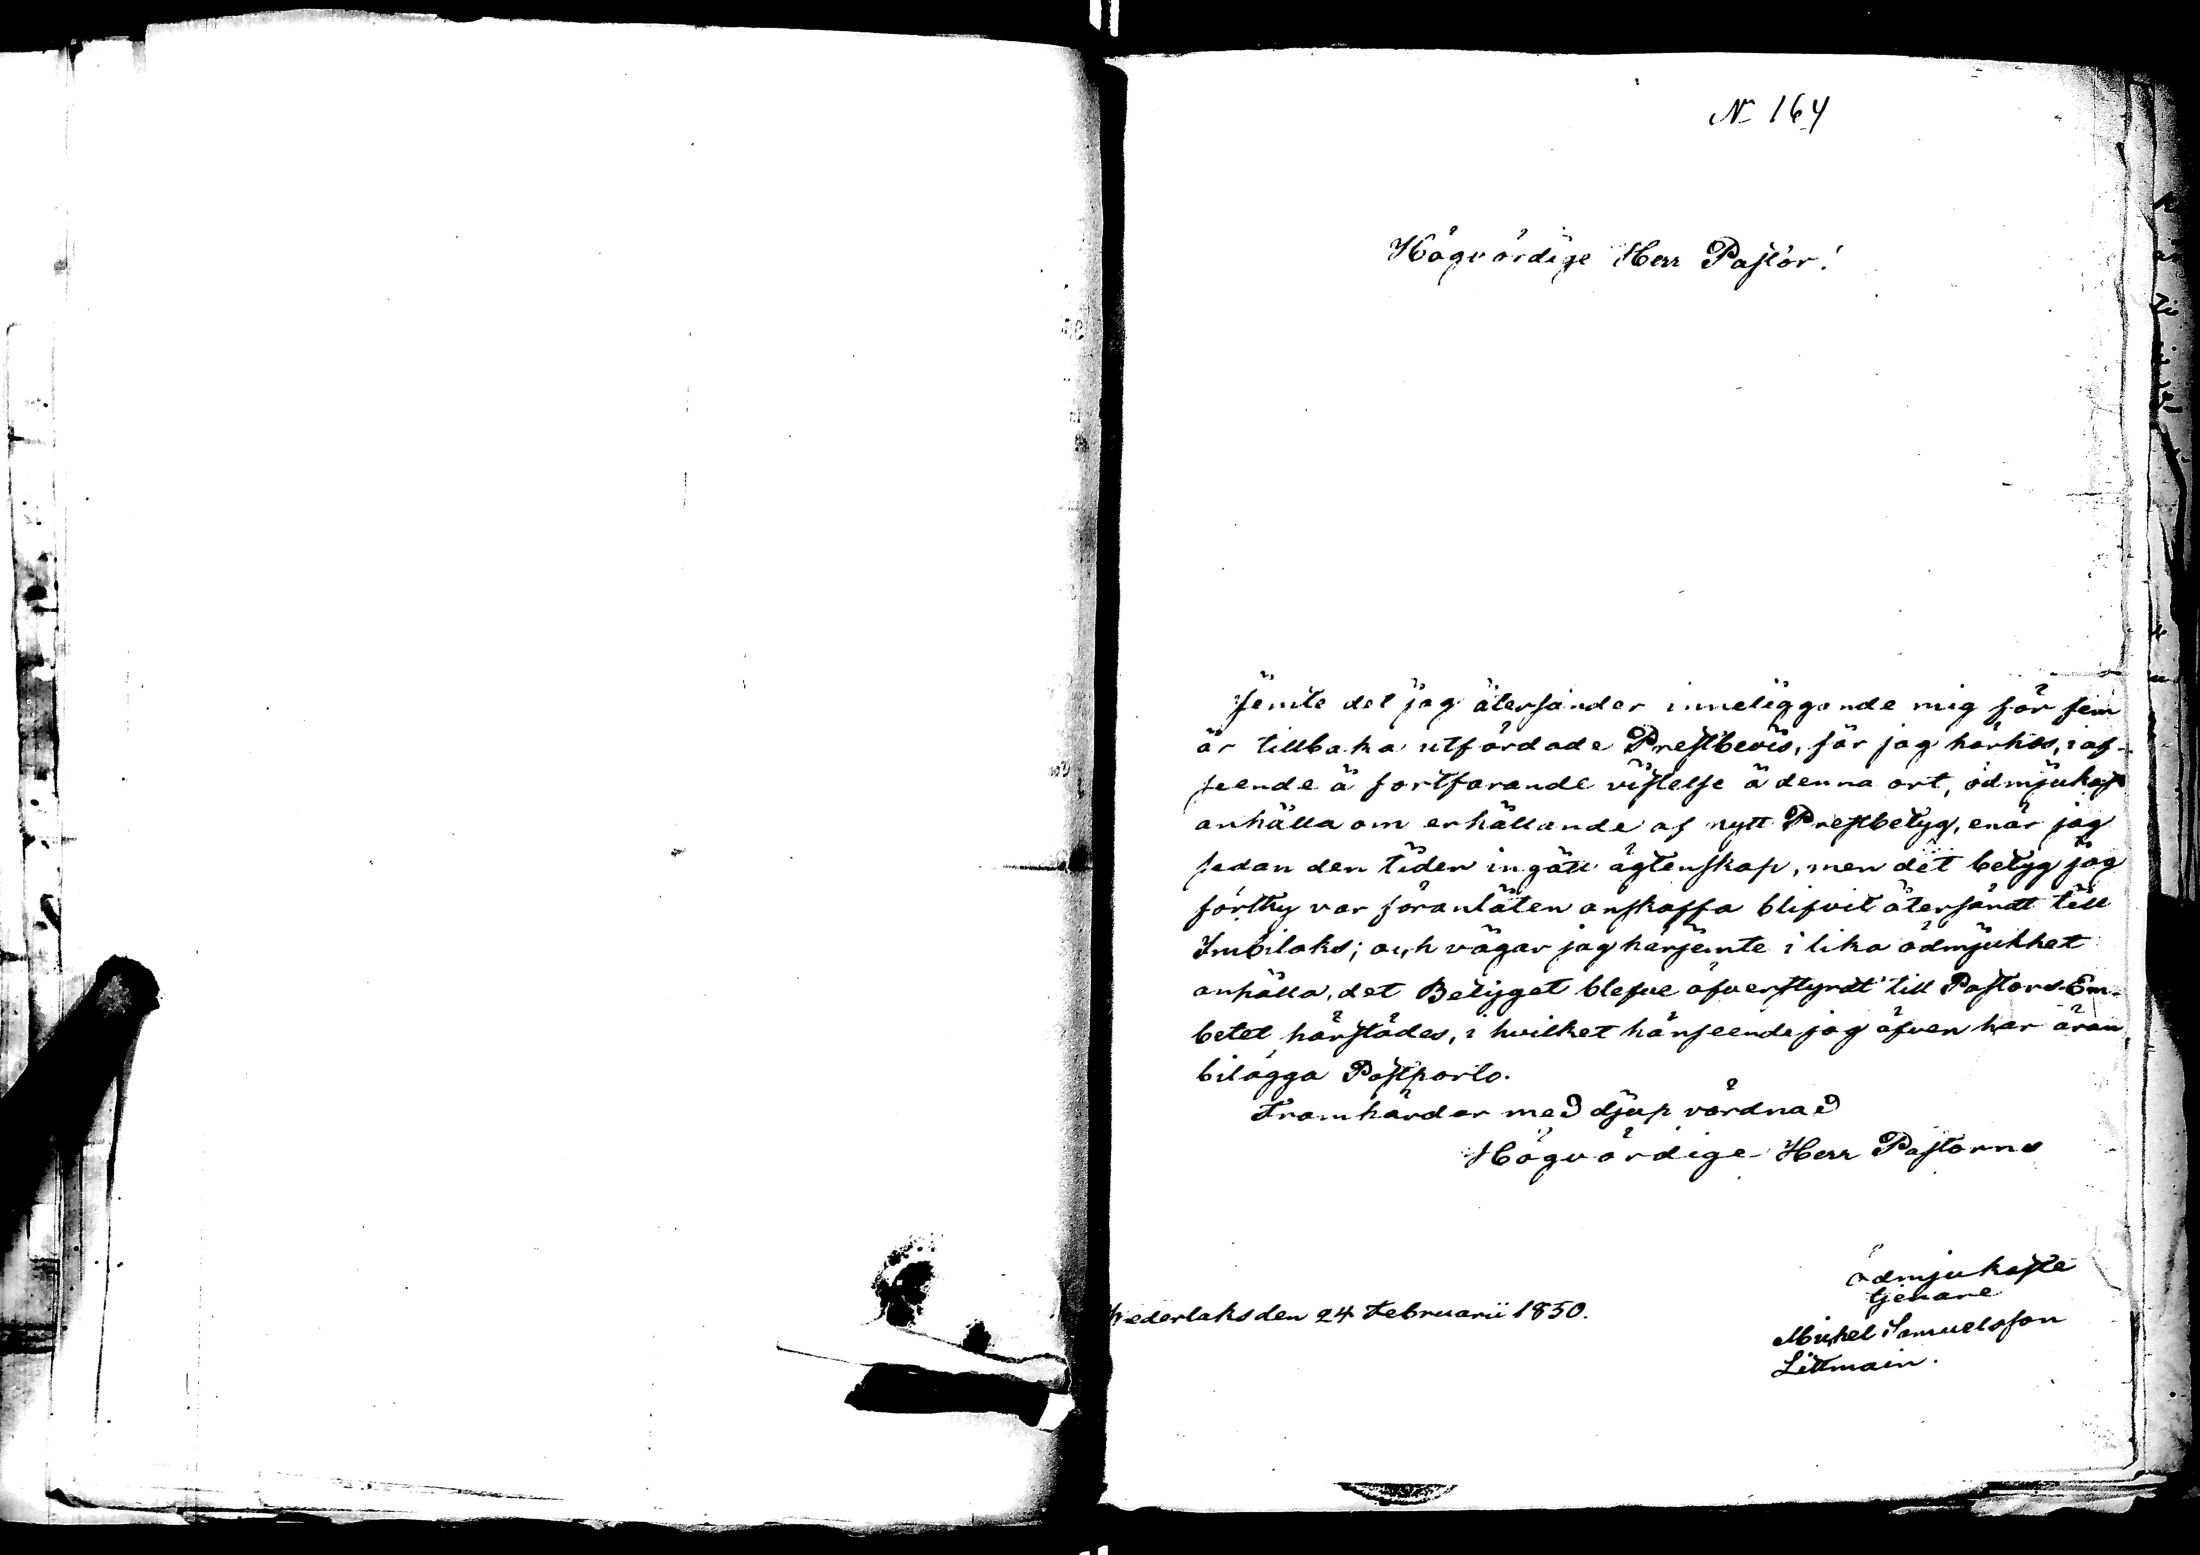 N 164
Högvördige Herr Pastor!
Jemte det jag återsänder inneliggande mig för fem
år tillbaka utfärdade Prestbevis, får jag härhos, i af-
seende å fortfarande vistelse å denna ort, ödmjukast
anhålla om erhållande af nytt Prestbetyg, enär jag
sedan den tiden ingått ägtenskap, men det betyg jag
förthy var föranlåten anskaffa blifvit återsändt till
Imbilaks; och vågar jag härjemte i lika ödmjukhet
anhålla, det Betyget blefve öfverstyrdt till Pastors Em-
betet härstädes, i hvilket hänseende jag äfven har äran
bilägga Postporto.
Framhärdar med djup vördnad
Högvördige Herr Pastorns
ödmjukaste
tjenare
Michel Samuelsson
Littmain.
Wederlaks den 24 Februarii 1850.